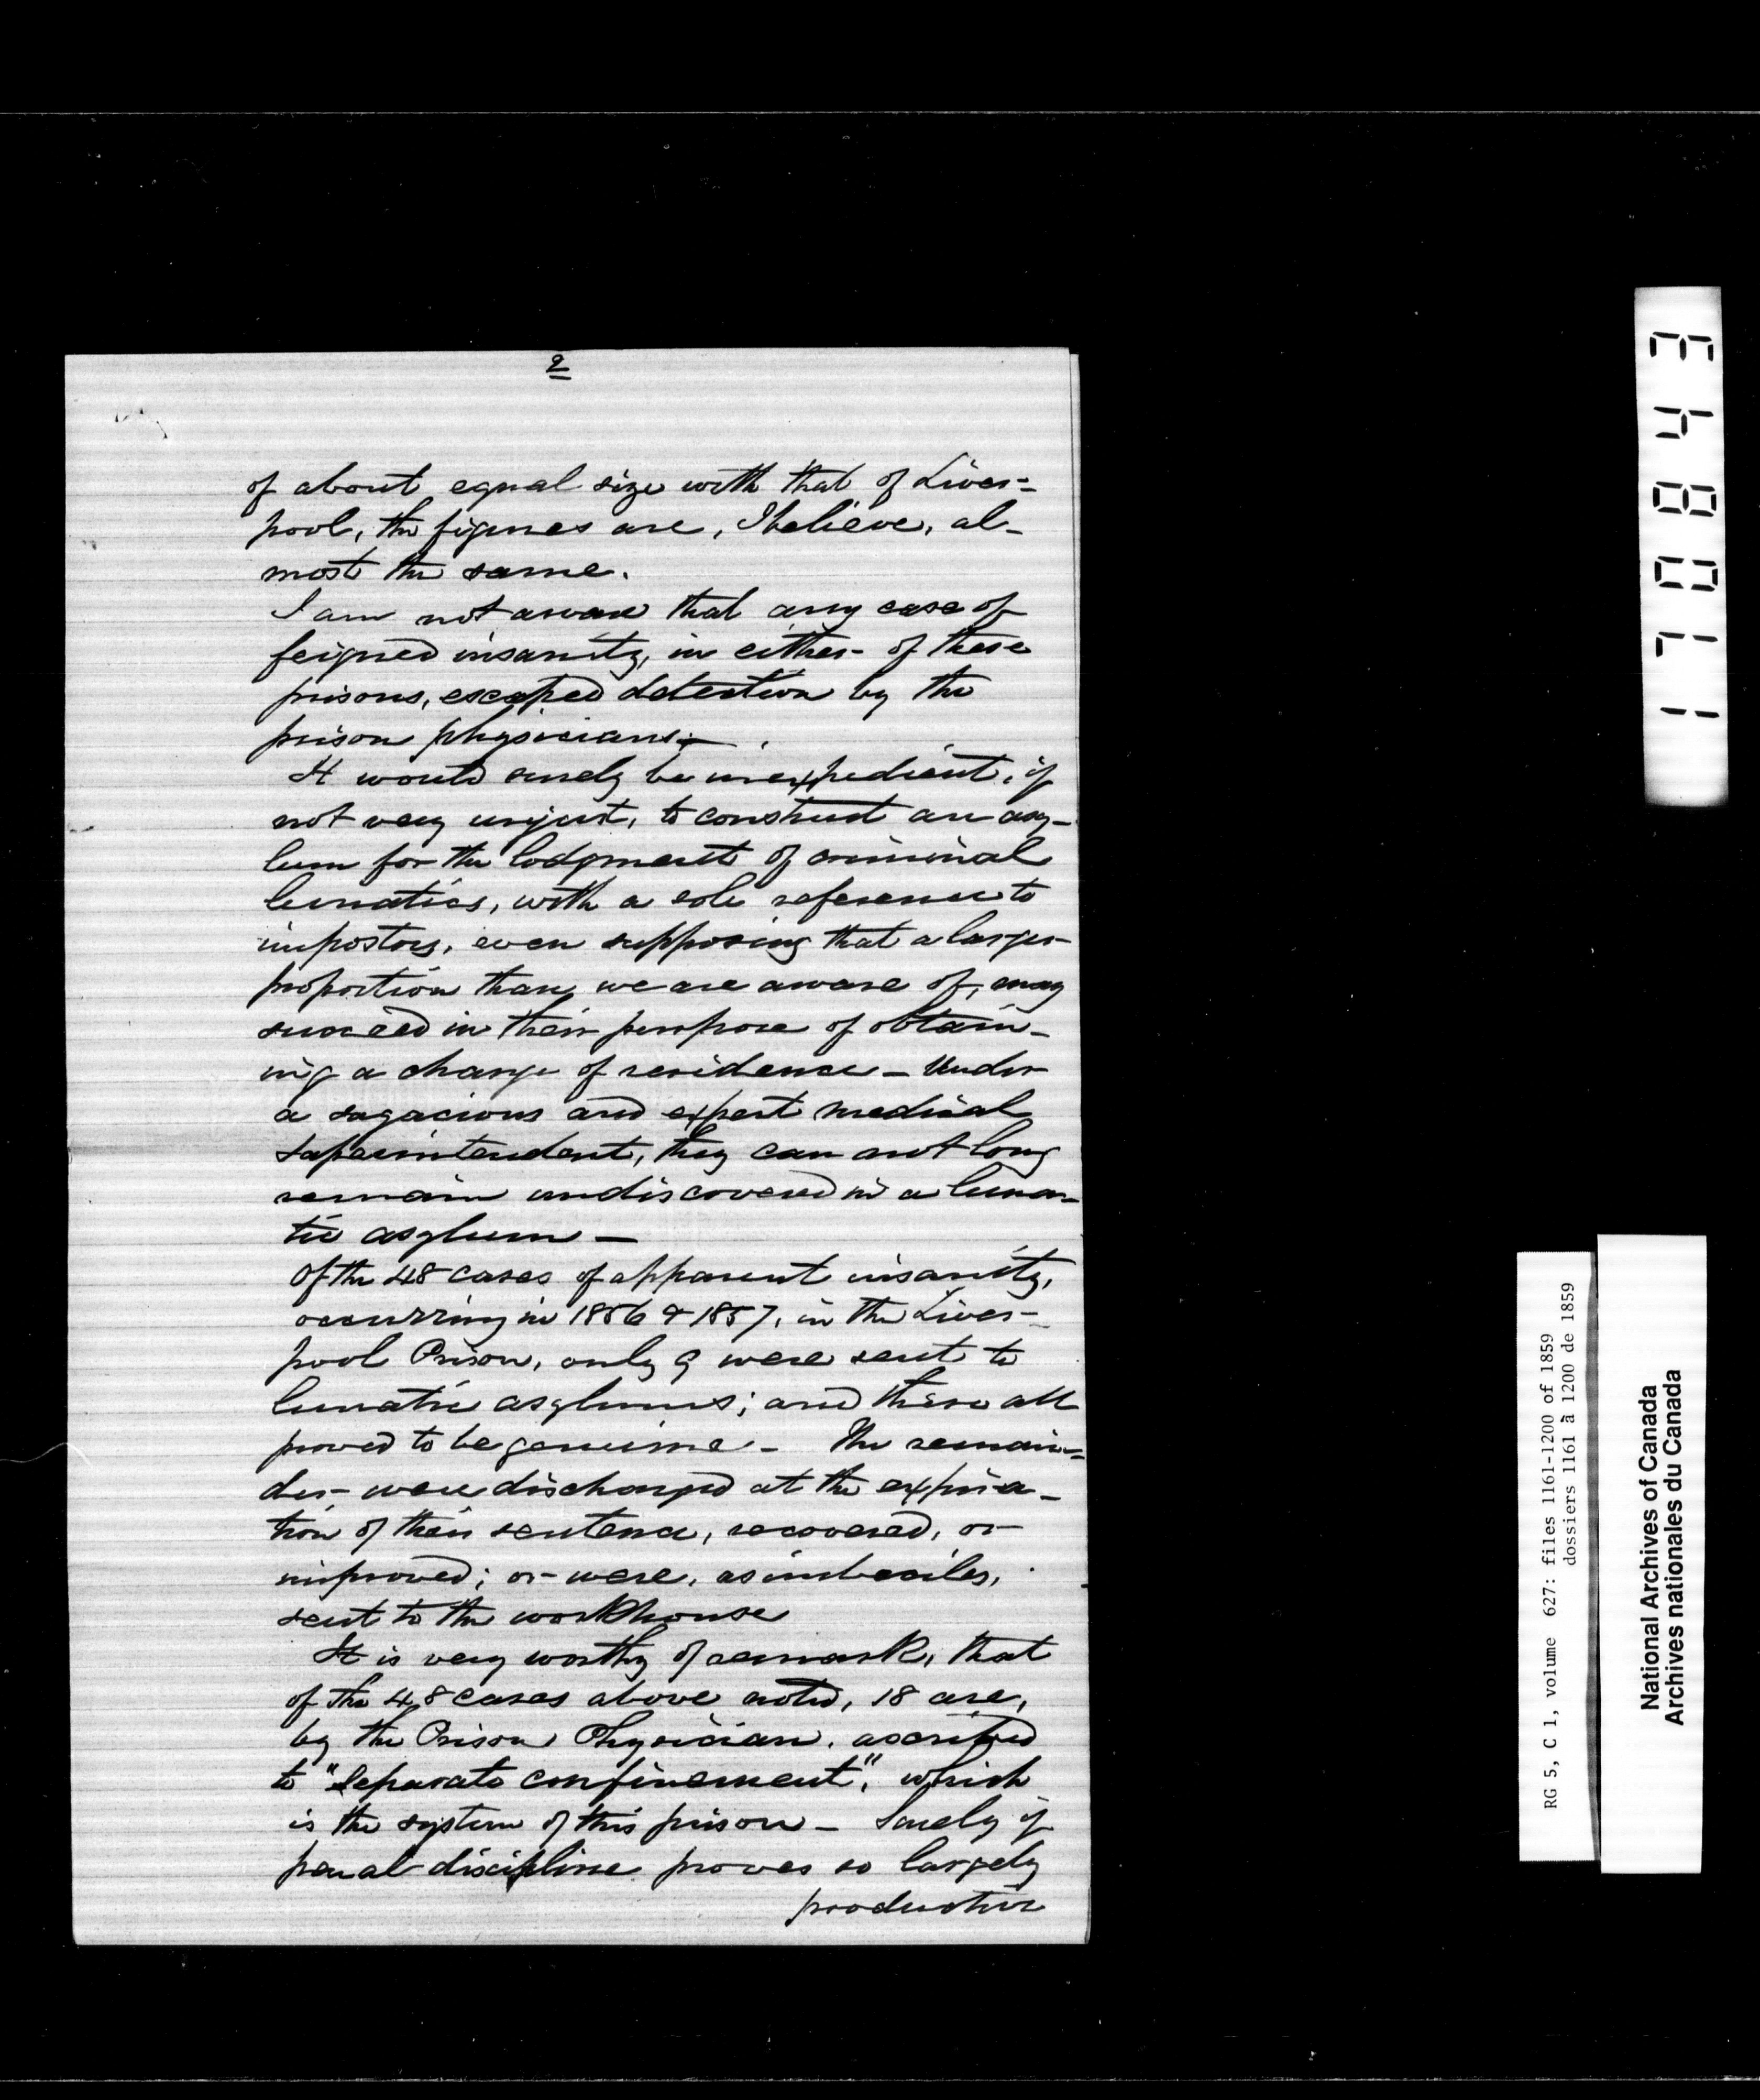 2
of about equal size with that of Liver=
pool, the figures are, I believe, al-
most the same.
I am not aware that any case of
feigned insanity, in either of these
prisons, escaped detection by the
prison physicians.
It would surely be inexpedient, if
not very unjust, to construct an asy-
lum for the lodgment of criminal
lunatics, with a sole reference to
impostors, even supposing that a larger
proportion than we are aware of, may
succeed in their purpose of obtain-
ing a change of residence - Under
a sagacious and expert medical
superintendent, they can not long
remain undiscovered in a luna-
tic asylum -
Of the 48 cases of apparent insanity,
occurring in 1856 & 1857, in the Liver-
pool Prison, only 9 were sent to
lunatic asylums; and these all
proved to be genuine - The remain=
der were discharged at the expira-
tion of their sentence, recovered, or
improved; or were, as imbeciles,
sent to the workhouse
It is very worthy of remark, that
of the 48 cases above noted, 18 are,
by the Prison Physician, ascribed
to "Separate confinement", which
is the system of this prison - Surely if
penal discipline proves so largely
productive
170843
RG 5, C 1, volume 627: files 1161-1200 of 1859
dossiers 1161 à 1200 de 1859
National Archives of Canada
Archives nationales du Canada